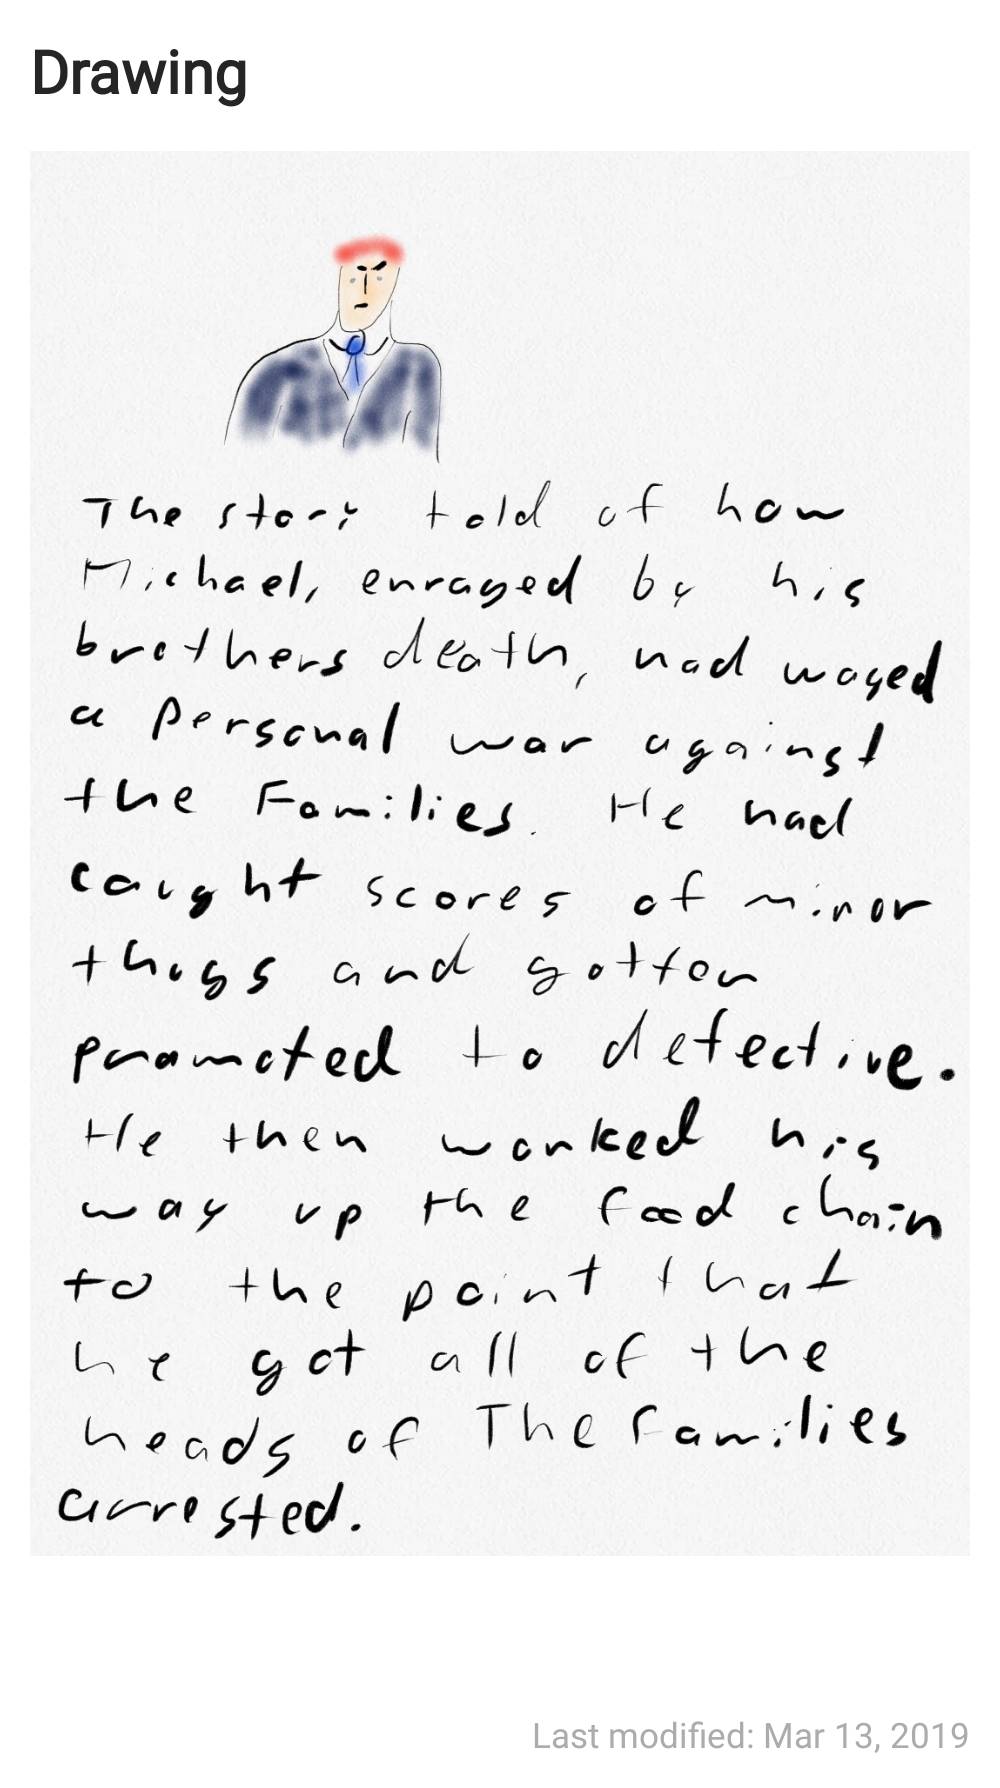 Drawing
The story told of how
Michael, enraged by his
brothers death, had waged
a personal war against
the Families. He had
caught scores of minor
thugs and gotten
promoted to detective.
He then worked his
way up the food chain
to the point that
he got all of the
heads of The Families
arrested.
Last modified: Mar 13, 2019